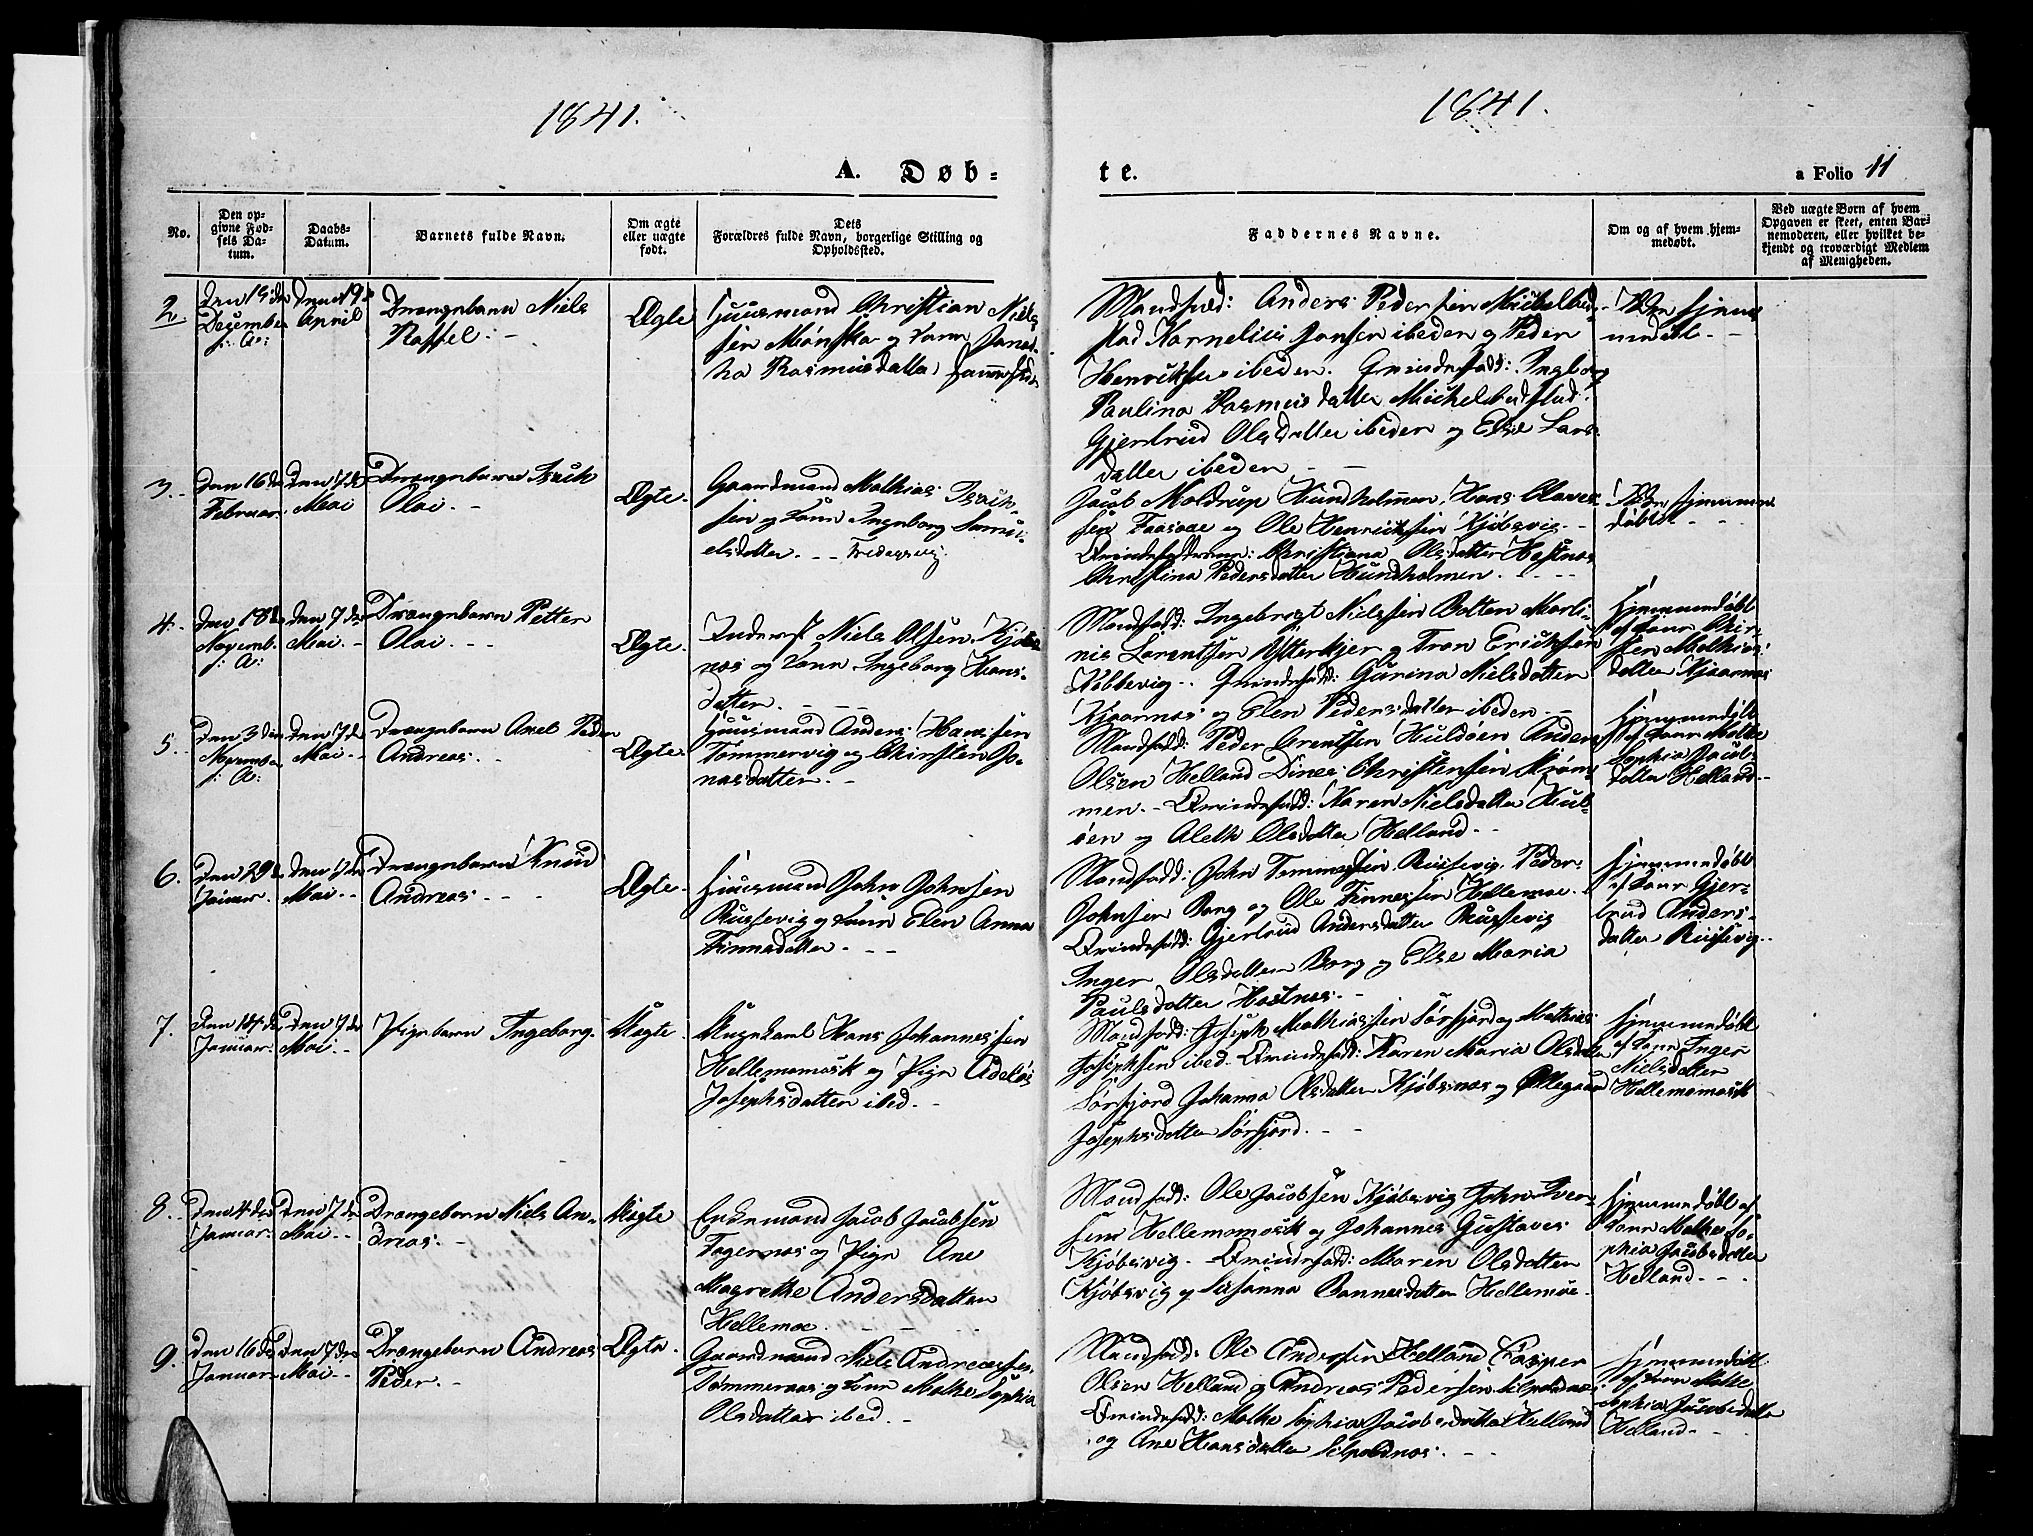 1841.
1841.
A. Døb-
te.
a Folio 11
No.
Den op-
givne Fød-
sels Da-
tum.
Daabs-
Datum.
Barnets fulde Navn.
Om ægte
eller uægte
født.
Dets
Forældres fulde Navn, borgerlige Stilling og
Opholdssted.
Faddernes Navne.
Om og af hvem hjem-
medøbt.
Ved uægte Børn af hvem
Opgaven er skeet, enten Bar-
nemoderen, eller hvilket be-
kjendt og troværdigt Medlem
af Menigheden.
2
December
f: A:
Den 19de
April
Drængebarn Niels
Ægte
Huusmand Christian Niels
sen
og Kone
Rasmusdatter
Mandfad: Anders Pedersen
Kornelius Jonsen ibeden og Peder
Henriksen ibeden. Qvindefadd: Ingborg
Paulina Rasmusdatter
Gjertrud Olsdatter ibeden og Else Lars
datter ibeden
3.
Den 16de
Februar.
Den 7de
Mai
Drængebarn
Oloi. -
Ægte.
Gaardmand Mathias
sen og Kone Ingeborg Samu-
elsdatter. - - Fredagsvig
Jacob Moldrup Hundholmen, Hans Olaves
sen og Ole Henrichsen Kjøbsvig. -
Christiana Olsdatter Hestnes
Christina Pedersdatter Hundholmen.
4.
Den 18de
Novemb.
f: A:
Den 7de
Mai. -
Drængebarn Petter
Oloi. - -
Ægte.
Inderst Niels Olsen, Kjøbs
nes og Kone Ingeborg Hans-
datter. -
Mandfadd: Ingebrigt Nielsen Botten
Lorentsen og Tron Ericksen
Kobbevig. - Qvindefadd: Gurina Nielsdatter
og Elen Pedersdatter ibeden. -
Hjemmedøbt
af Kone
sen Mathias
datter
5.
Den 3die
Novembr
f: A:
Den 7de
Mai. -
Drængebarn Axel Peder
Andreas. -
Ægte.
Huusmand Anders Hansen
Tømmervig og Kirsten Jo-
nasdatter. -
Mandfadd: Peder Arentsen Huldøen Anders
Olsen Helland Dines Christensen
men. - Qvindefadd: Karen Nielsdatter Hul-
øen og Aleth Olsdatter Helland. -
Hjemmedøbt
af Kone Malke
Sophia Jacobs-
datter Helland. -
6.
Den 29de
Januar.
Den 7de
Mai. -
Drængebarn Knud
Andreas. - -
Ægte.
Huusmand John Johnsen
Russevig og Kone Elen Anna
Finnesdatter. - -
Mandfadd: John Russevig, Peder
Johnsen Borg og Ole Finnessen Hellemoe.
Qvindefadd: Gjertrud Andersdatter Russevig
Inger Olsdatter Borg og Else Maria
Paulsdatter Hestnes. -
Hjemmedøbt
af Kone Gjer-
trud Anders-
datter Russevig.
7.
Den 14de
Januar.
Den 7de
Mai. -
Pigebarn Ingeborg.
Uægte
Ungkarl Hans Johannessen
Hellemomosk og Pige
Josephsdatter ibed. -
Mandfadd: Joseph Mathiassen Sørfjord og Mathias
Josephsen ibed. Qvindefadd: Karen Maria Olsdatter
Sørfjord Johanna Olsdatter Kjøbsnes og Ellegaard
Josephsdatter Sørfjord. - -
Hjemmedøbt
af Kone Inger
Nielsdatter
Hellemomosk
8.
Den 4de
Januar.
Den 7de
Mai. -
Drængebarn Niels An-
dreas. -
Uægte
Enkemand Jacob Jacobsen
Fagernes og Pige Ane
Magrethe Andersdatter
Hellemoe.
Mandfadd: Ole Jacobsen Kjøbsvig John Iver-
sen Hellemomosk og Johannes Gustaves
Kjøbsvig. - Qvindefadd: Maren Olsdatter
Kjøbsvig og Susanna Hellemoe.
Hjemmedøbt af
Kone Malke So-
phia Jacobsdatter
Helland. - -
9.
Den 16de
Januar.
Den 7de
Mai. -
Drængebarn Andreas
Peder. -
Ægte.
Gaardmand Niels Andreassen
og Kone Malke Sophia
Olsdatter ibed. -
Mandfadd: Ole Andersen Helland Casper
Olsen Helland og Andreas Pedersen
Qvindefadd: Malke Sophia Jacobsdatter Helland
og Ane Hansdatter
Hjemmedøbt
af Kone Malke
Sophia Jacobsdatter
Helland. -